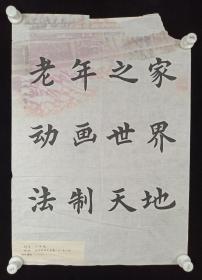 老年之家
动画世界
法制天地